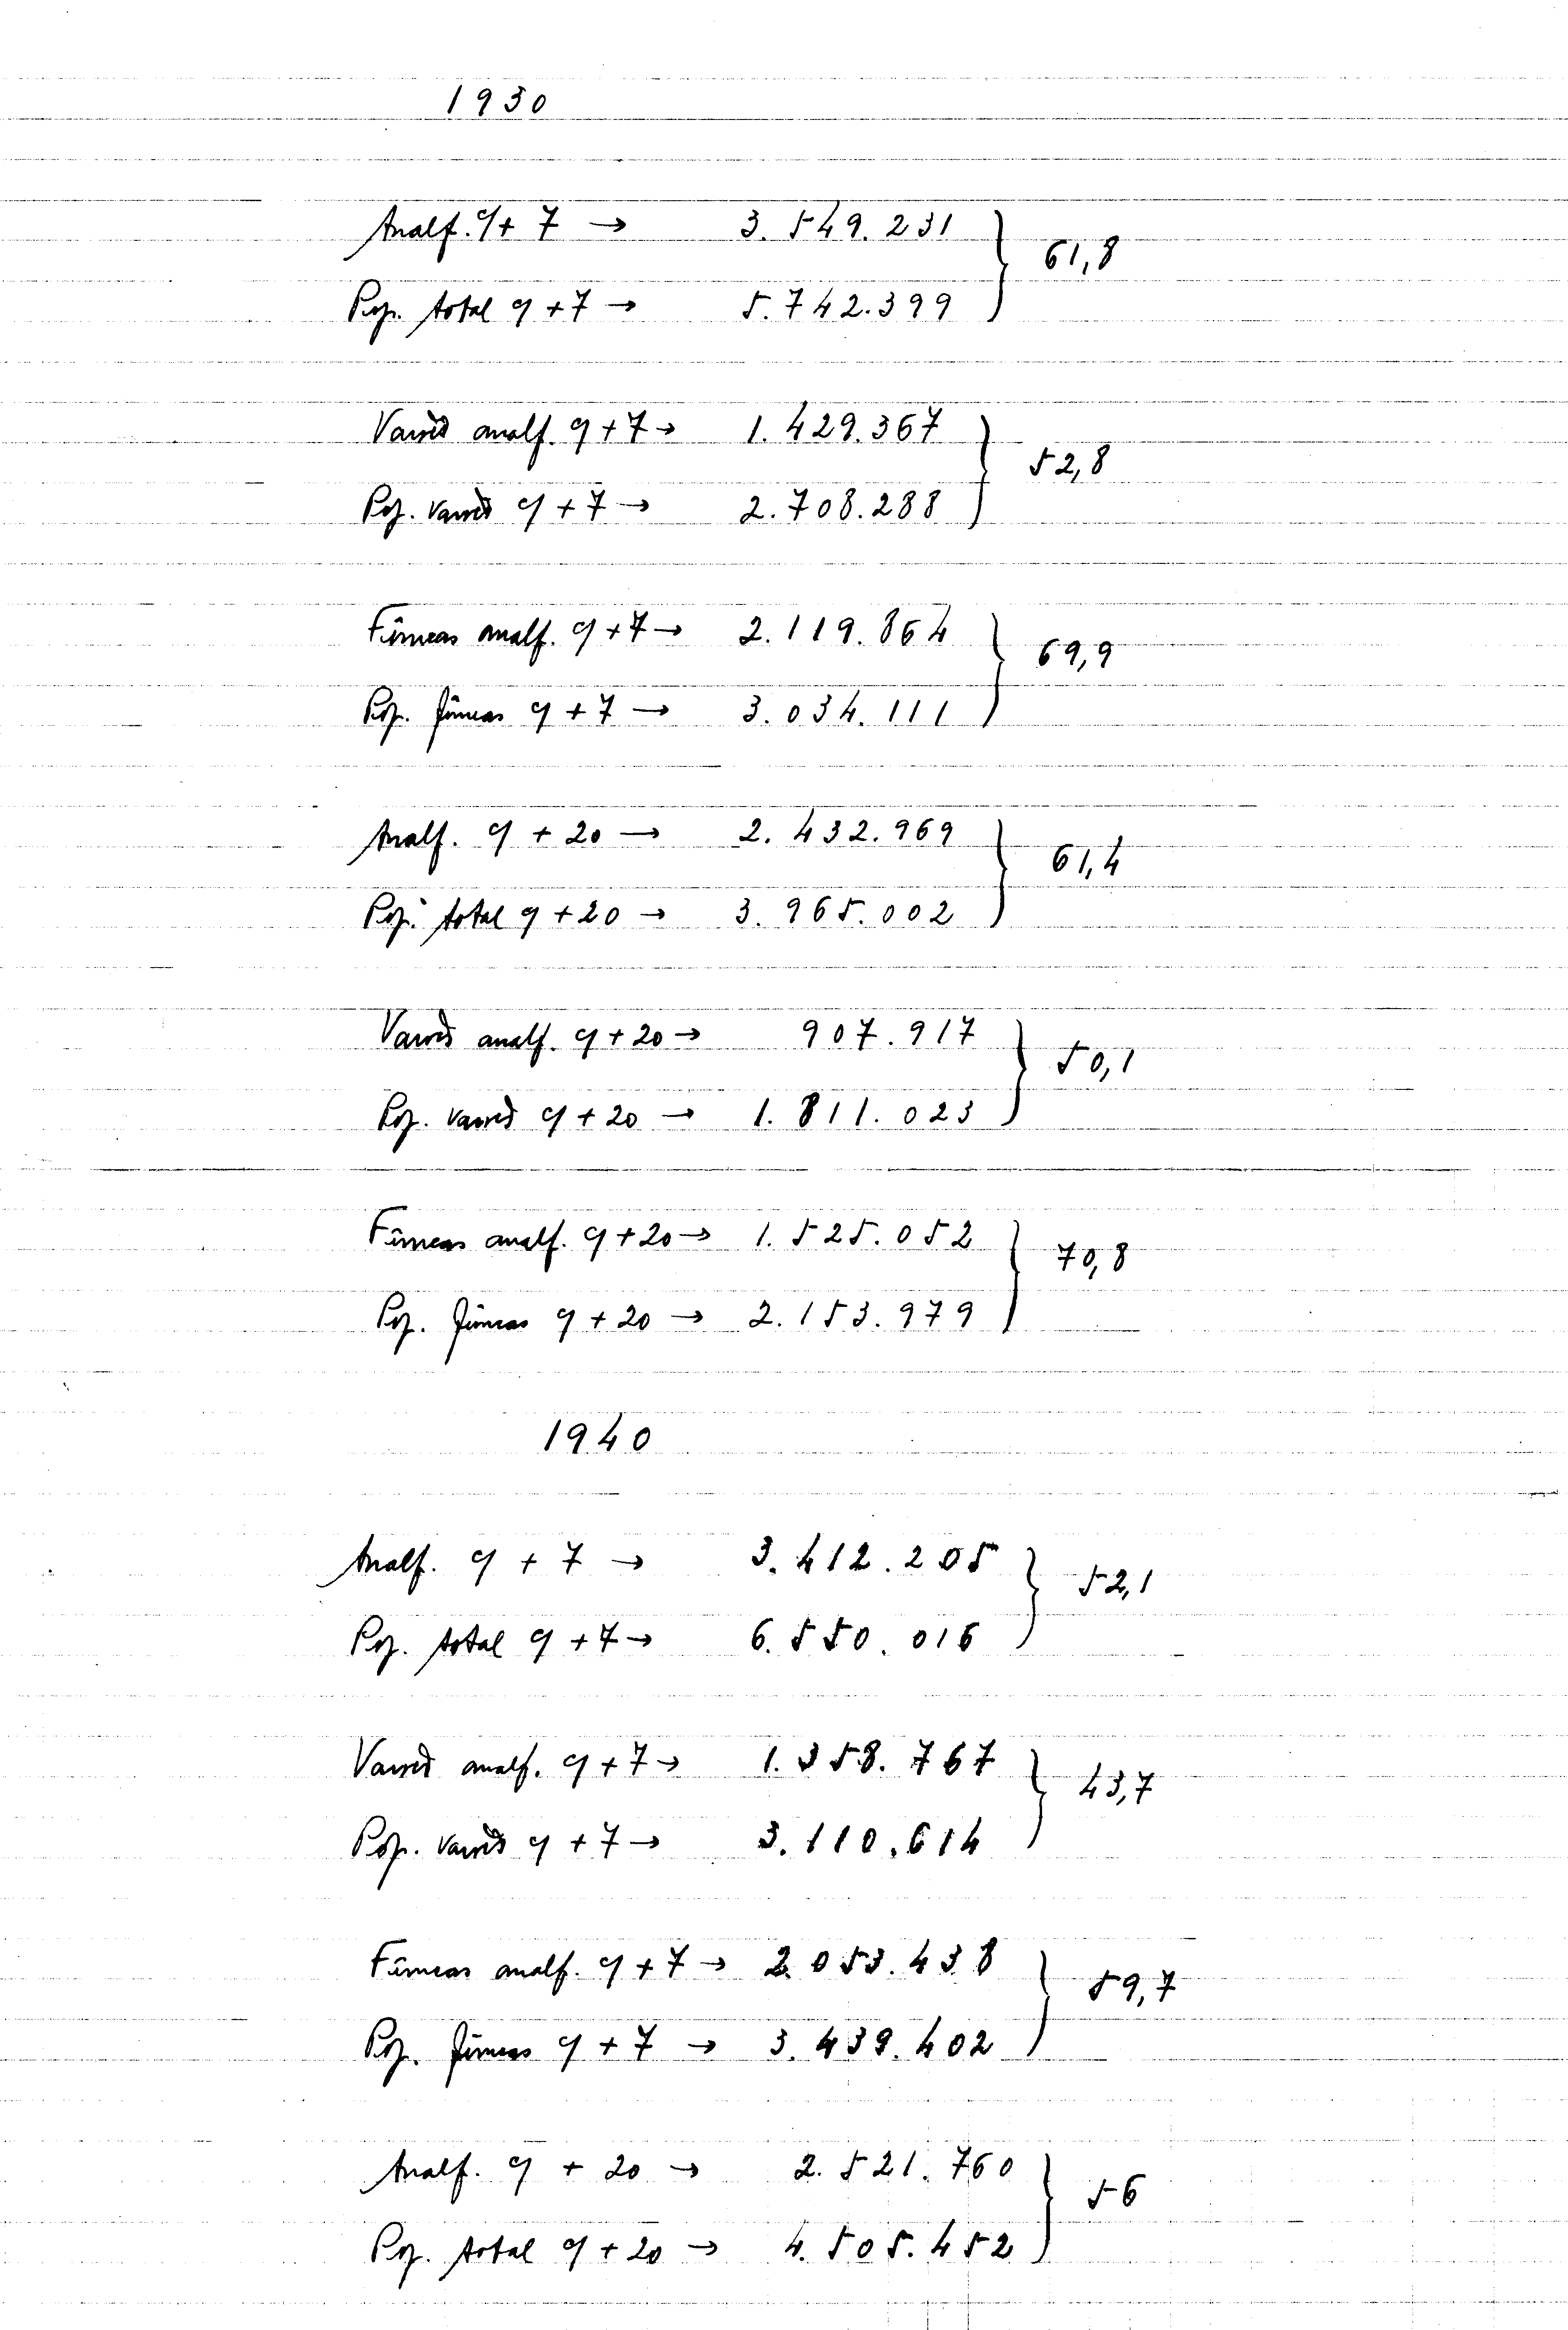 1930
Analf. c/ + 7 → 3.549.231
61,8
Pop. total c/ + 7 → 5.742.399
Varões analf. c/ + 7 → 1.429.367
52,8
Pop. varões c/ + 7 → 2.708.288
Fêmeas analf. c/ + 7 → 2.119.864
69,9
Pop. fêmeas c/ + 7 → 3.034.111
Analf. c/ + 20 → 2.432.969
61,4
Pop. total c/ + 20 → 3.965.002
Varões analf. c/ + 20 → 907.917
50,1
Pop. varões c/ + 20 → 1.811.023
Fêmeas analf. c/ + 20 → 1.525.052
70,8
Pop. fêmeas c/ + 20 → 2.153.979
1940
Analf. c/ + 7 → 3.412.205
52,1
Pop. total c/ + 7 → 6.550.016
Varões analf. c/ + 7 → 1.358.767
43,7
Pop. varões c/ + 7 → 3.110.614
Fêmeas analf. c/ + 7 → 2.053.438
59,7
Pop. fêmeas c/ + 7 → 3.439.402
Analf. c/ + 20 → 2.521.760
56
Pop. total c/ + 20 → 4.505.452